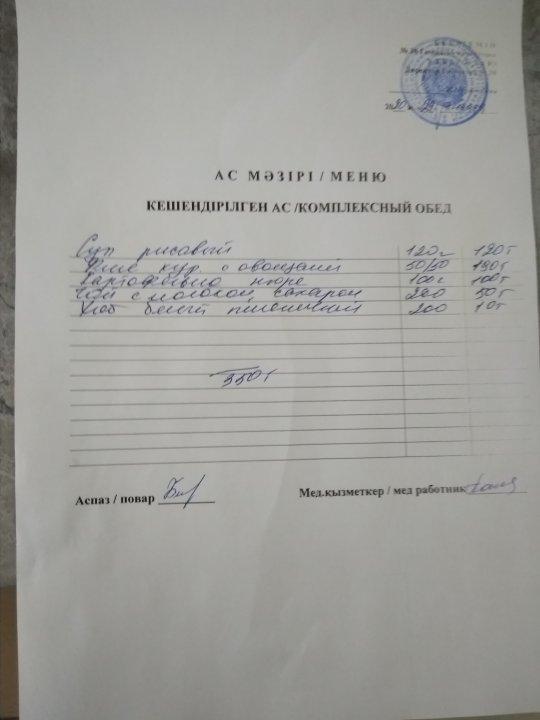 БЕКІТЕМІН
Директор
АС МӘЗІРІ / МЕНЮ
КЕШЕНДІРІЛГЕН АС /КОМПЛЕКСНЫЙ ОБЕД
Суп рисовый 120г 120т
кур. с овощами 50/50 190т
Картофельно пюре 100г 100т
Чай с молоком, сахаром 200 50т
Хлеб белый пшеничный 200 10т
Аспаз / повар
Мед.кызметкер / мед работник